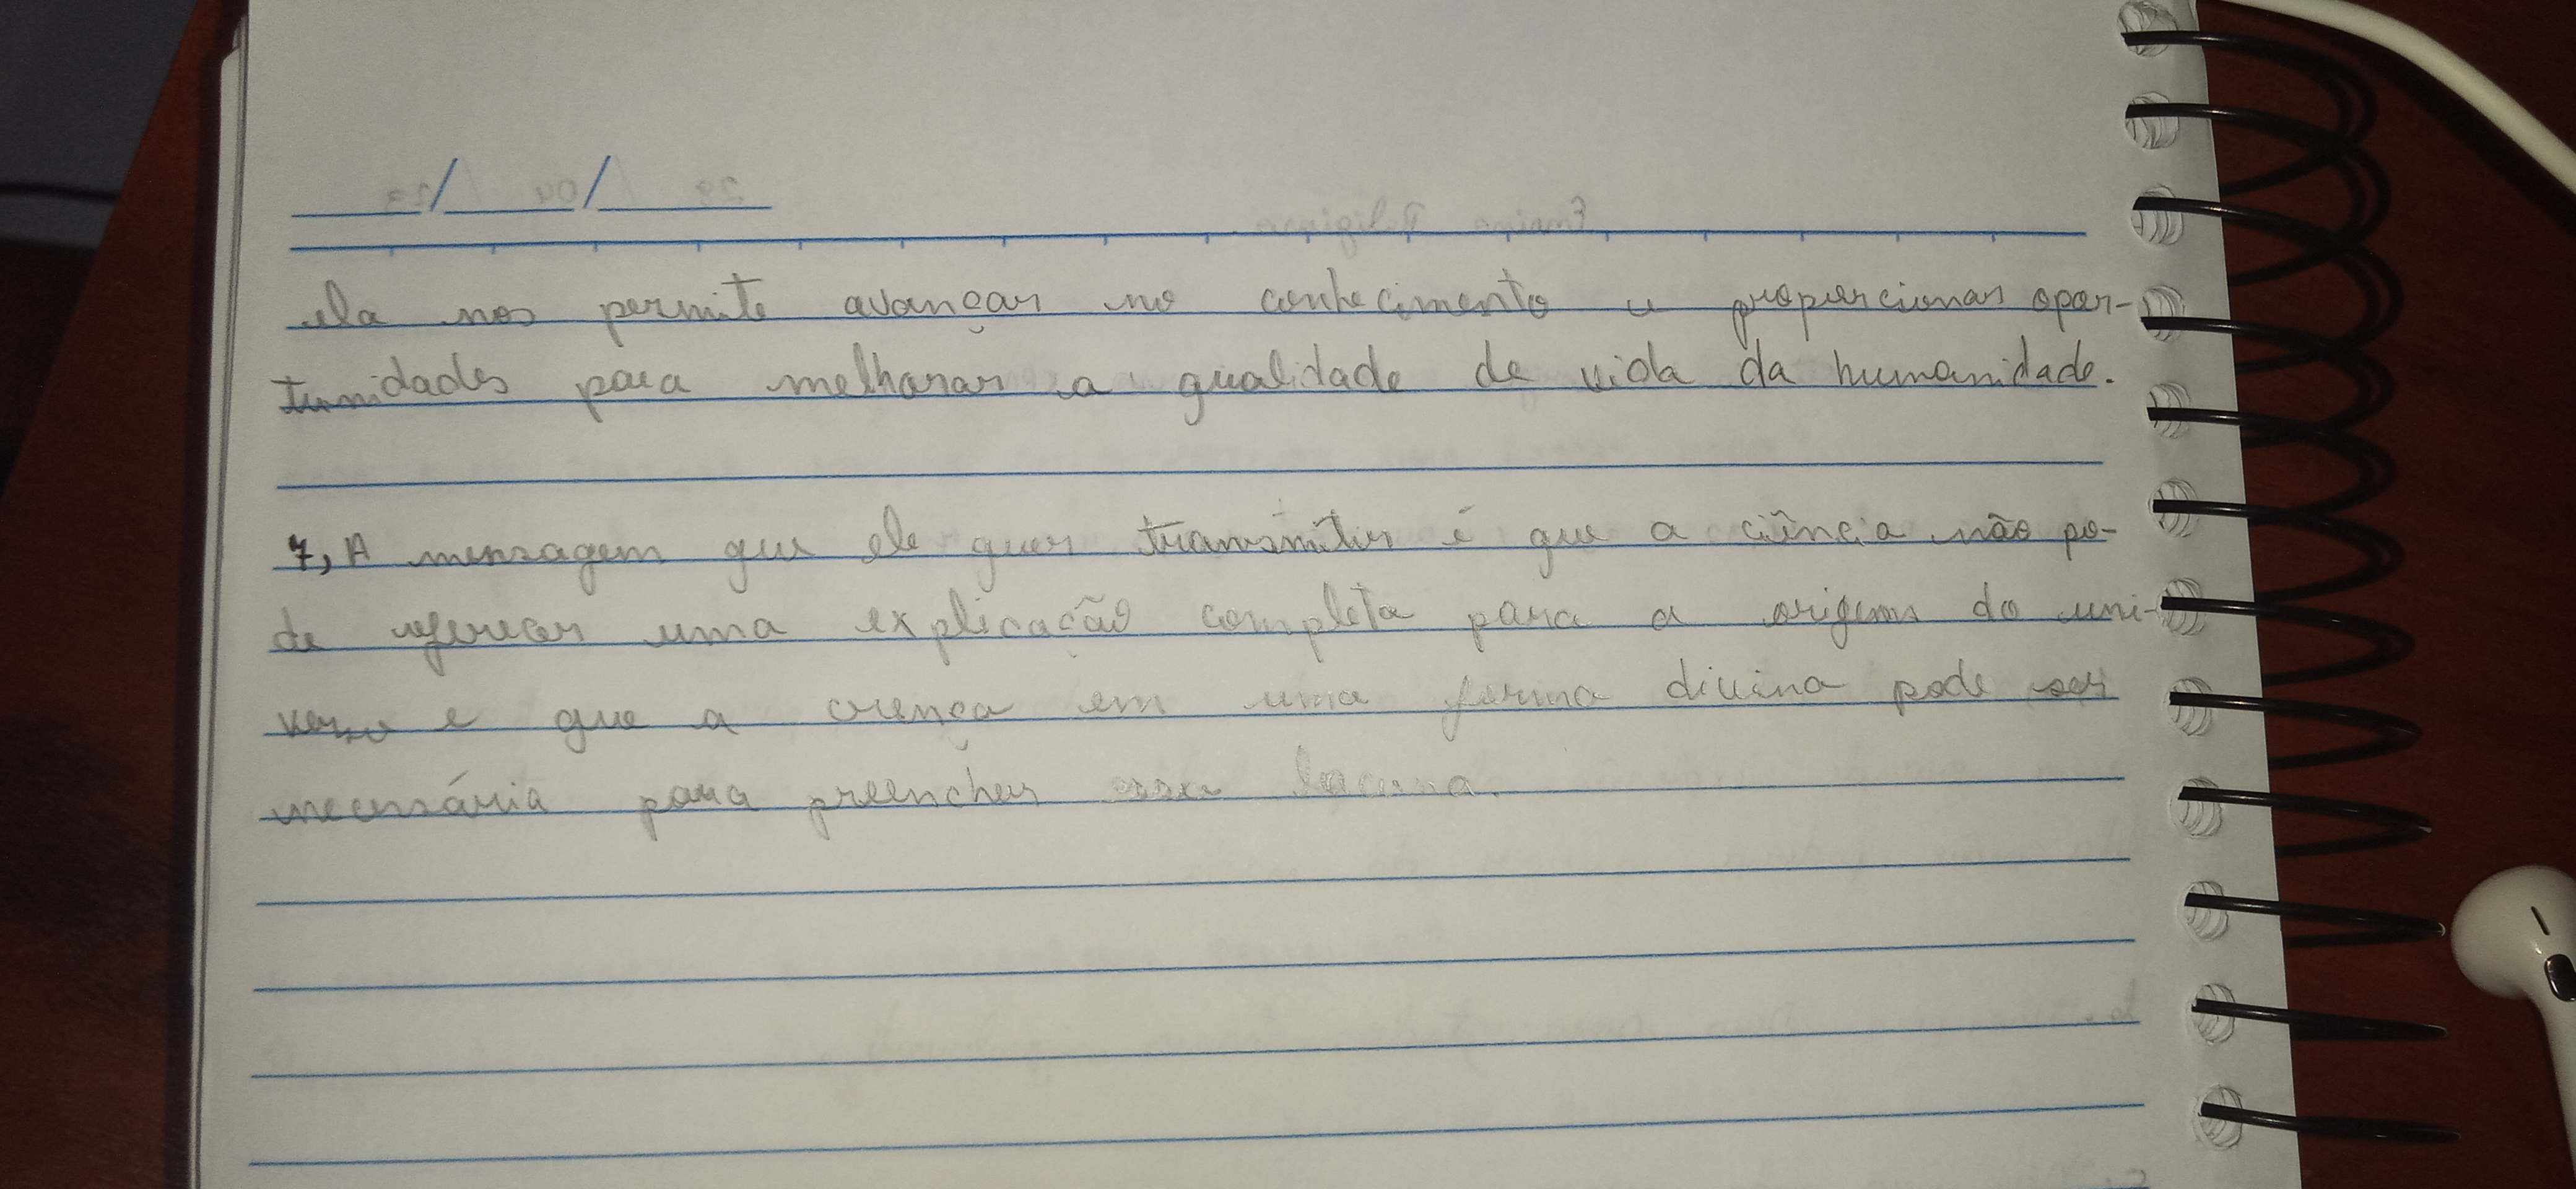 ela nos permite avançar no conhecimento e proporcionar opor-
tunidades para melhorar a qualidade de vida da humanidade.
7, A mensagem que ele quer transmitir é que a ciência não po-
de oferecer uma explicação completa para a origem do uni-
verso e que a crença em uma forma divina pode ser
necessária para preencher essa lacuna.